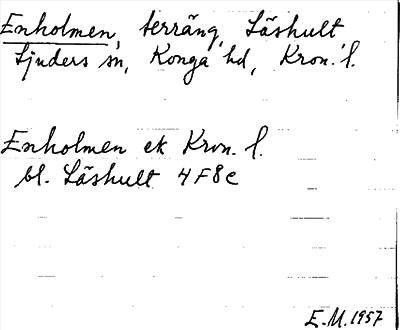 Enholmen, terräng, Låshult
Ljuders sn, Konga hd, Kron. l.
Enholmen ek Kron. l.
bl. Låshult 4F8c
E.M. 1957